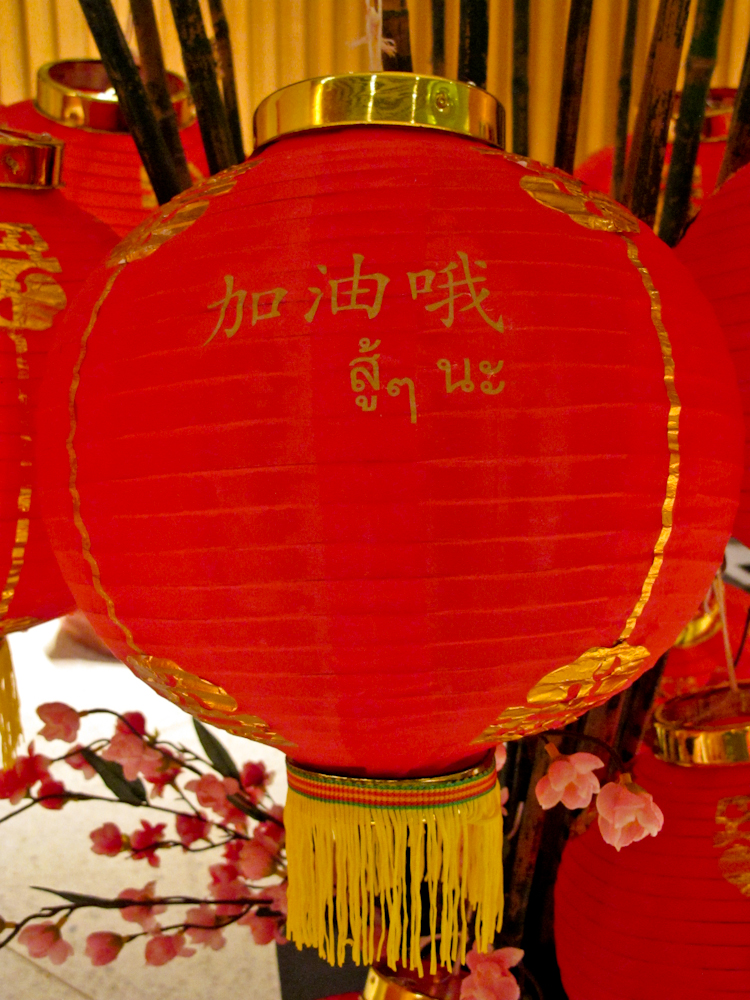 加油哦
สู้ๆ นะ